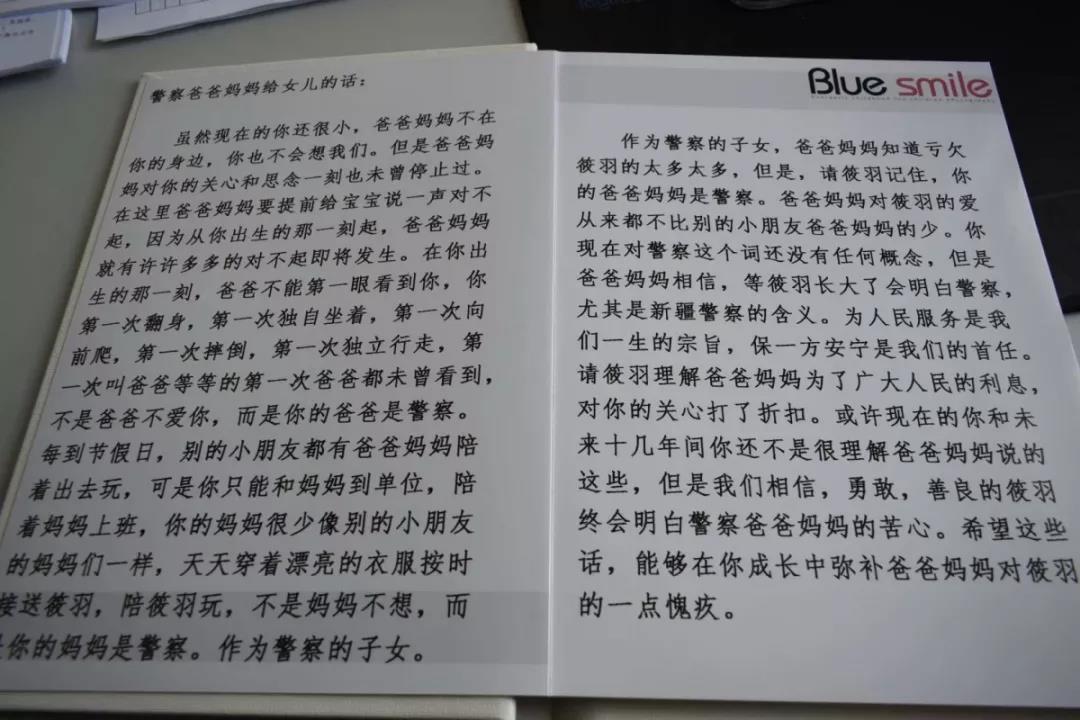 警察爸爸妈妈给女儿的话：
虽然现在的你还很小，爸爸妈妈不在
你的身边，你也不会想我们。但是爸爸妈
妈对你的关心和思念一刻也未曾停止过。
在这里爸爸妈妈要提前给宝宝说一声对不
起，因为从你出生的那一刻起，爸爸妈妈
就有许许多多的对不起即将发生。在你出
生的那一刻，爸爸不能第一眼看到你，你
第一次翻身，第一次独自坐着，第一次向
前爬，第一次摔倒，第一次独立行走，第
一次叫爸爸等等的第一次爸爸都未曾看到，
不是爸爸不爱你，而是你的爸爸是警察。
每到节假日，别的小朋友都有爸爸妈妈陪
着出去玩，可是你只能和妈妈到单位，陪
着妈妈上班，你的妈妈很少像别的小朋友
的妈妈们一样，天天穿着漂亮的衣服按时
接送筱羽，陪筱羽玩，不是妈妈不想，而
是你的妈妈是警察。作为警察的子女。
Blue smile
作为警察的子女，爸爸妈妈知道亏欠
筱羽的太多太多，但是，请筱羽记住，你
的爸爸妈妈是警察。爸爸妈妈对筱羽的爱
从来都不比别的小朋友爸爸妈妈的少。你
现在对警察这个词还没有任何概念，但是
爸爸妈妈相信，等筱羽长大了会明白警察，
尤其是新疆警察的含义。为人民服务是我
们一生的宗旨，保一方安宁是我们的首任。
请筱羽理解爸爸妈妈为了广大人民的利息，
对你的关心打了折扣。或许现在的你和未
来十几年间你还不是很理解爸爸妈妈说的
这些，但是我们相信，勇敢，善良的筱羽
终会明白警察爸爸妈妈的苦心。希望这些
话，能够在你成长中弥补爸爸妈妈对筱羽
的一点愧疚。